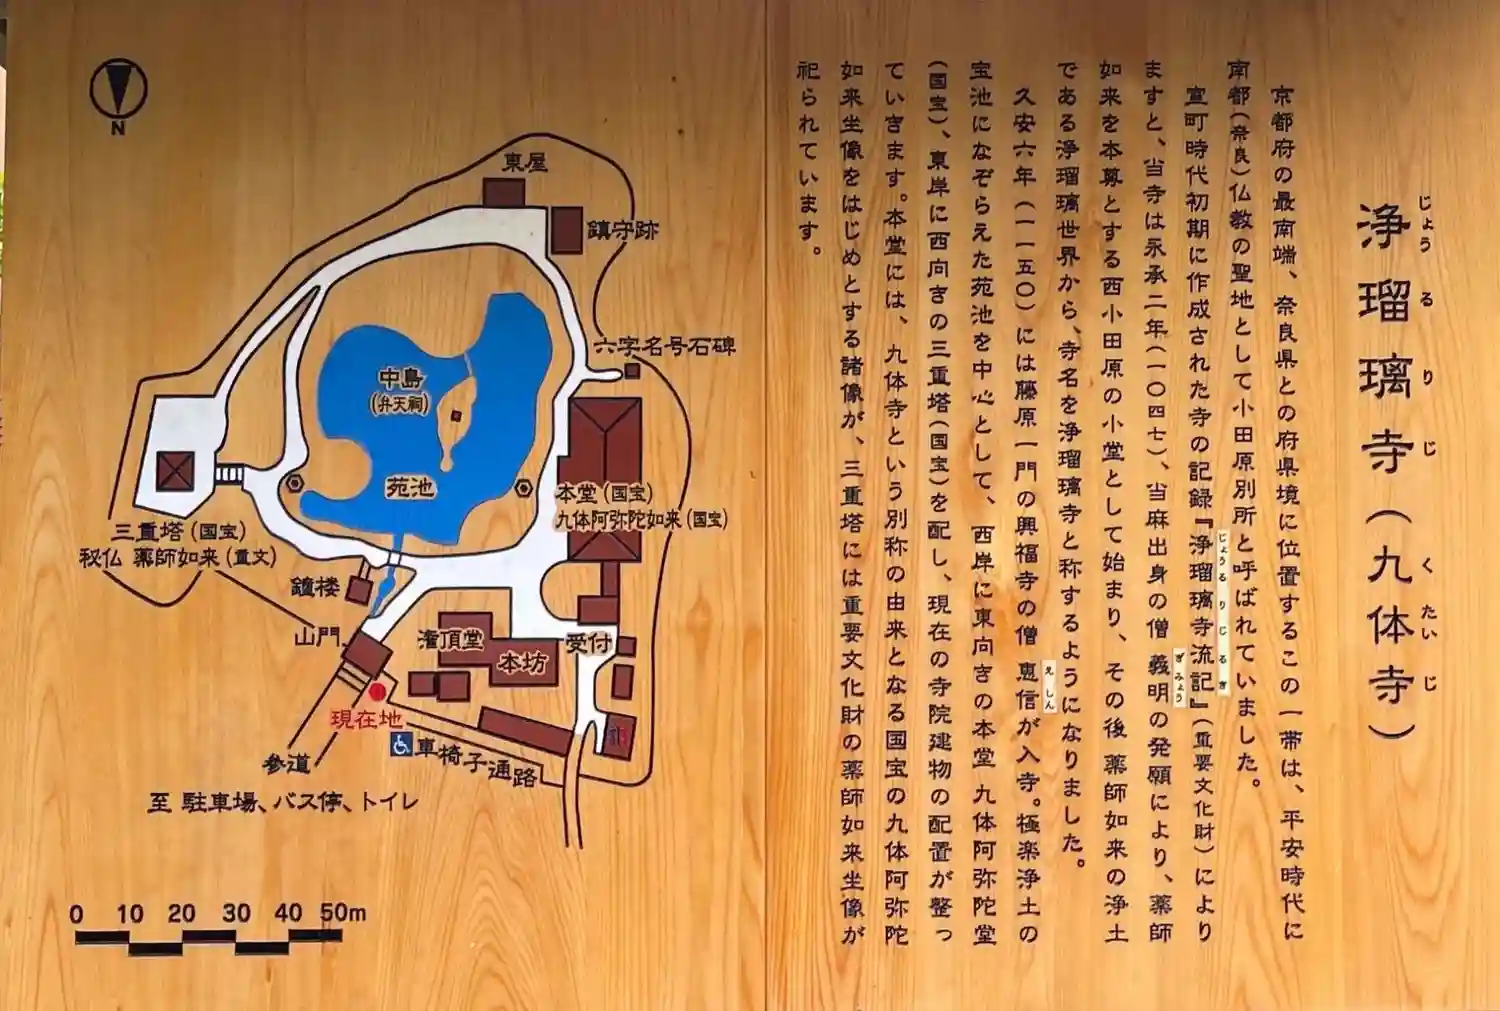 浄瑠璃寺（九体寺）
じょうるりじ（くたいじ）
京都府の最南端、奈良県との府県境に位置するこの一帯は、平安時代に
南都（奈良）仏教の聖地として小田原別所と呼ばれていました。
室町時代初期に作成された寺の記録『浄瑠璃寺流記』（重要文化財）により
じょうるりじるき
ますと、当寺は永承二年（一〇四七）、当麻出身の僧 義明の発願により、薬師
ぎみょう
如来を本尊とする西小田原の小堂として始まり、その後 薬師如来の浄土
である浄瑠璃世界から、寺名を浄瑠璃寺と称するようになりました。
久安六年（一一五〇）には藤原一門の興福寺の僧 恵信が入寺。極楽浄土の
えしん
宝池になぞらえた苑池を中心として、西岸に東向きの本堂 九体阿弥陀堂
（国宝）、東岸に西向きの三重塔（国宝）を配し、現在の寺院建物の配置が整っ
ていきます。本堂には、九体寺という別称の由来となる国宝の九体阿弥陀
如来坐像をはじめとする諸像が、三重塔には重要文化財の薬師如来坐像が
祀られています。
N
東屋
鎮守跡
六字名号石碑
中島
（弁天祠）
苑池
本堂（国宝）
九体阿弥陀如来（国宝）
三重塔（国宝）
秘仏 薬師如来（重文）
鐘楼
山門
潅頂堂
本坊
受付
現在地
車椅子通路
参道
至 駐車場、バス停、トイレ
0 10 20 30 40 50m